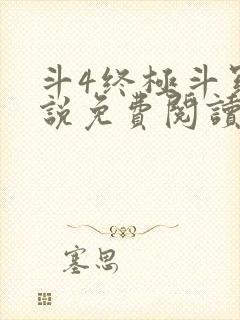 斗4终極斗
説免費閱讀
塞思